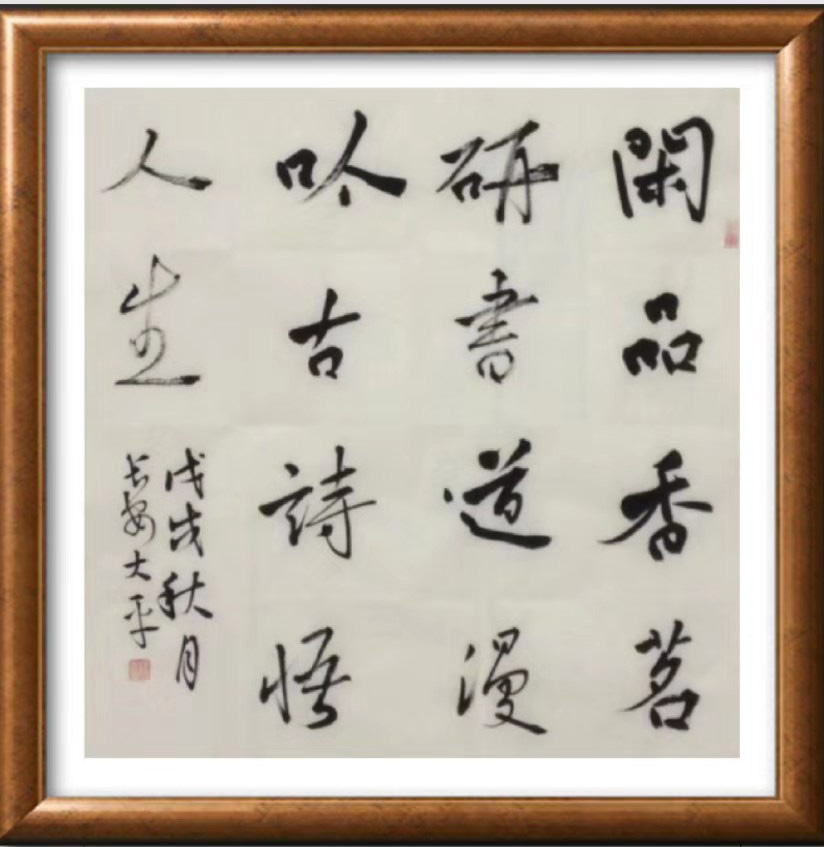 閑品香茗
研書道漫
吟古詩悟
人生
戊戌秋月
长安大平